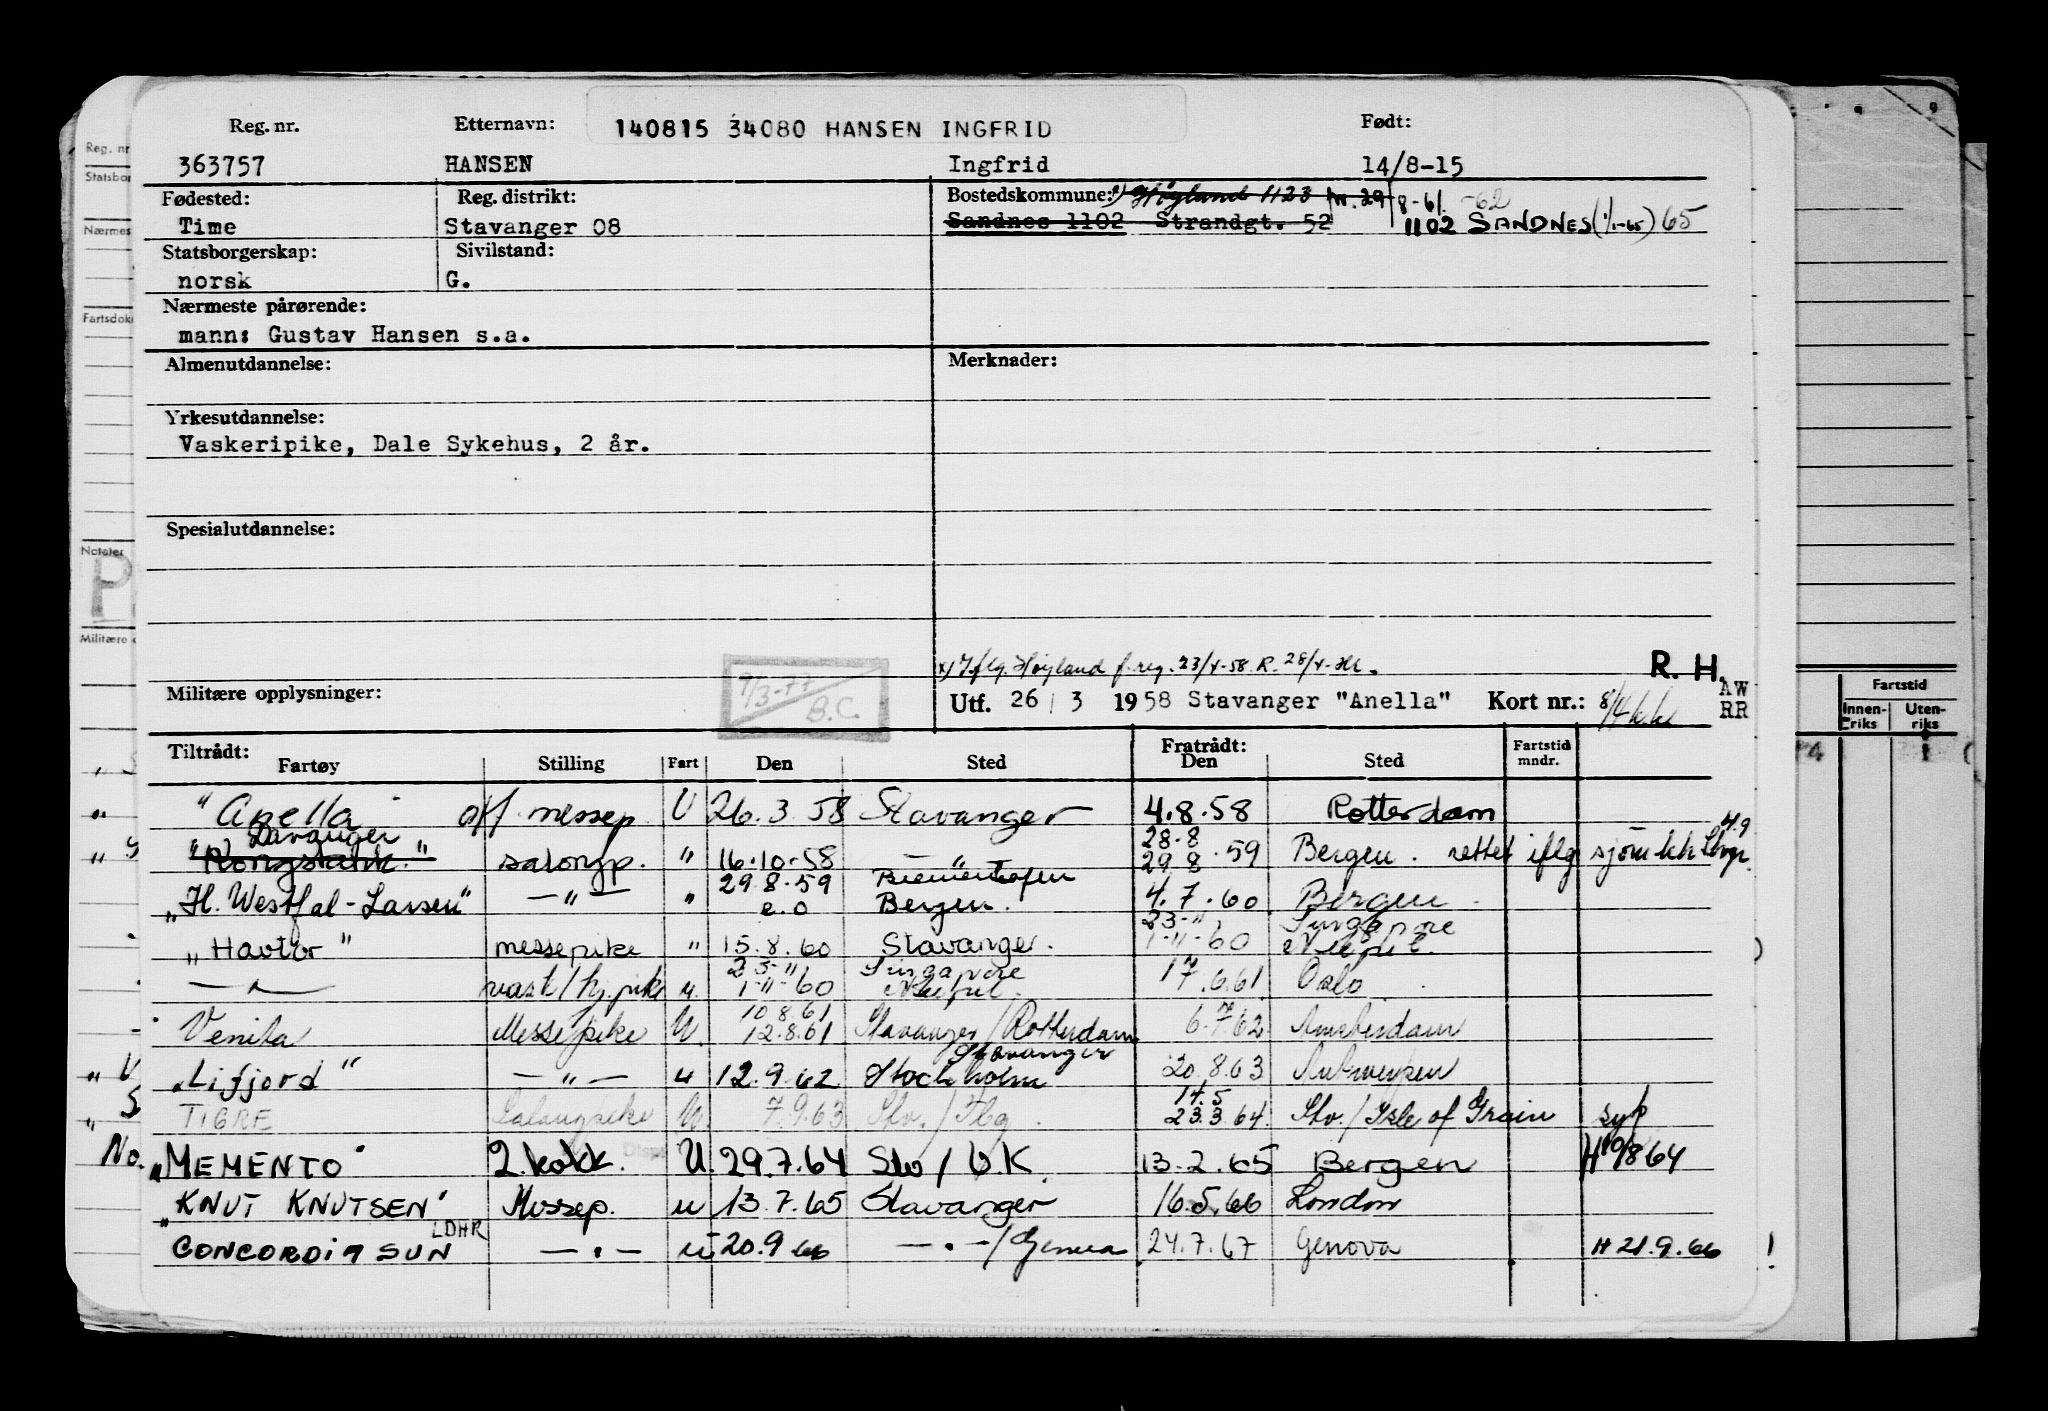 140815 34080 HANSEN INGFRID
Reg. nr. Etternavn: Født:
363757 HANSEN Ingfrid 14/8-15
Fødested: Reg. distrikt: Bostedskommune: Høyland 1123 8-61 -62
Time Stavanger 08 Sandnes 1102 Strandgt. 52 1102 SANDNES (1/1-65) 65
Statsborgerskap: Sivilstand:
norsk G.
Nærmeste pårørende:
mann: Gustav Hansen s.a.
Almenutdannelse: Merknader:
Yrkesutdannelse:
Vaskeripike, Dale Sykehus, 2 år.
Spesialutdannelse:
x) Iflg. Høyland f.reg. 23/4-58. R. 28/4-
R. H.
AW
RR
Militære opplysninger: 9/3-77 B.C. Utf. 26 / 3 1958 Stavanger "Anella" Kort nr.: 8/4
Tiltrådt: Fratrådt: Fartstid
Fartøy Stilling Fart Den Sted Den Sted mndr.
"Anella" off. messep. U 26.3.58 Stavanger 4.8.58 Rotterdam
"Davanger
"Rongstakk." salongp. " 16.10.58 — " — 28.8 29.8.59 Bergen. rettet iflg sjøm.kk
"H. Westfal-Larsen" — " — " 29.8.59 e.o Bremerhafen Bergen. 4.7.60 Bergen.
"Havtor" messepike " 15.8.60 Stavanger. 23-" 1-11-60 Singapore
— " — vask/kj.pike u. 23-" 1-11-60 Singapore 17.6.61 Oslo
Venita Messepike U. 10.8.61 12.8.61 Stavanger/Rotterdam 6.7.62 Amsterdam
"Lifjord" — " — u 12.9.62 Stavanger Stockholm 20.8.63 Antwerpen
TIGRE Salongpike U. 7.9.63 Stv./Hbg. 14.5 23.3.64. Stv./Isle of Grain syk
"MEMENTO" 2. kokk. U. 29.7.64 Stv/UK. 13.2.65 Bergen H 10/8 64
"KNUT KNUTSEN" Messep. u 13.7.65 Stavanger 16.5.66 London
CONCORDIA SUN LDHR — " — u 20.9 66 — " — /Genua 24.7.67 Genova H 21.9.66 !
Reg. nr
Statsbor
Nærmes
Fartsdok
Notater
P
Militære
No.
Fartstid
Innen- Uten-
riks riks